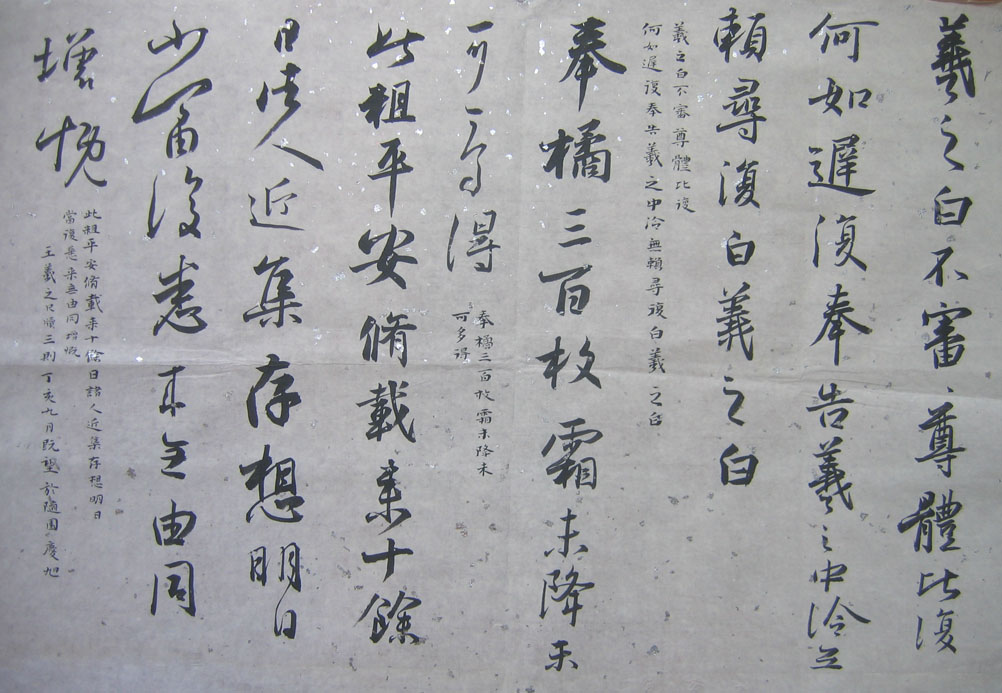 羲之白不審尊體比復
何如遲復奉告羲之中冷無
賴尋復白羲之白
羲之白不審尊體比復
何如遲復奉告羲之中冷無賴尋復白羲之白
奉橘三百枚霜未降未
可多得
奉橘三百枚霜未降未
可多得
此粗平安脩載來十餘
日諸人近集存想明日
當復悉來無由同
增慨
此粗平安脩載來十餘日諸人近集存想明日
當復悉來無由同增慨
王羲之尺牘三則丁亥九月既望於隨園慶旭